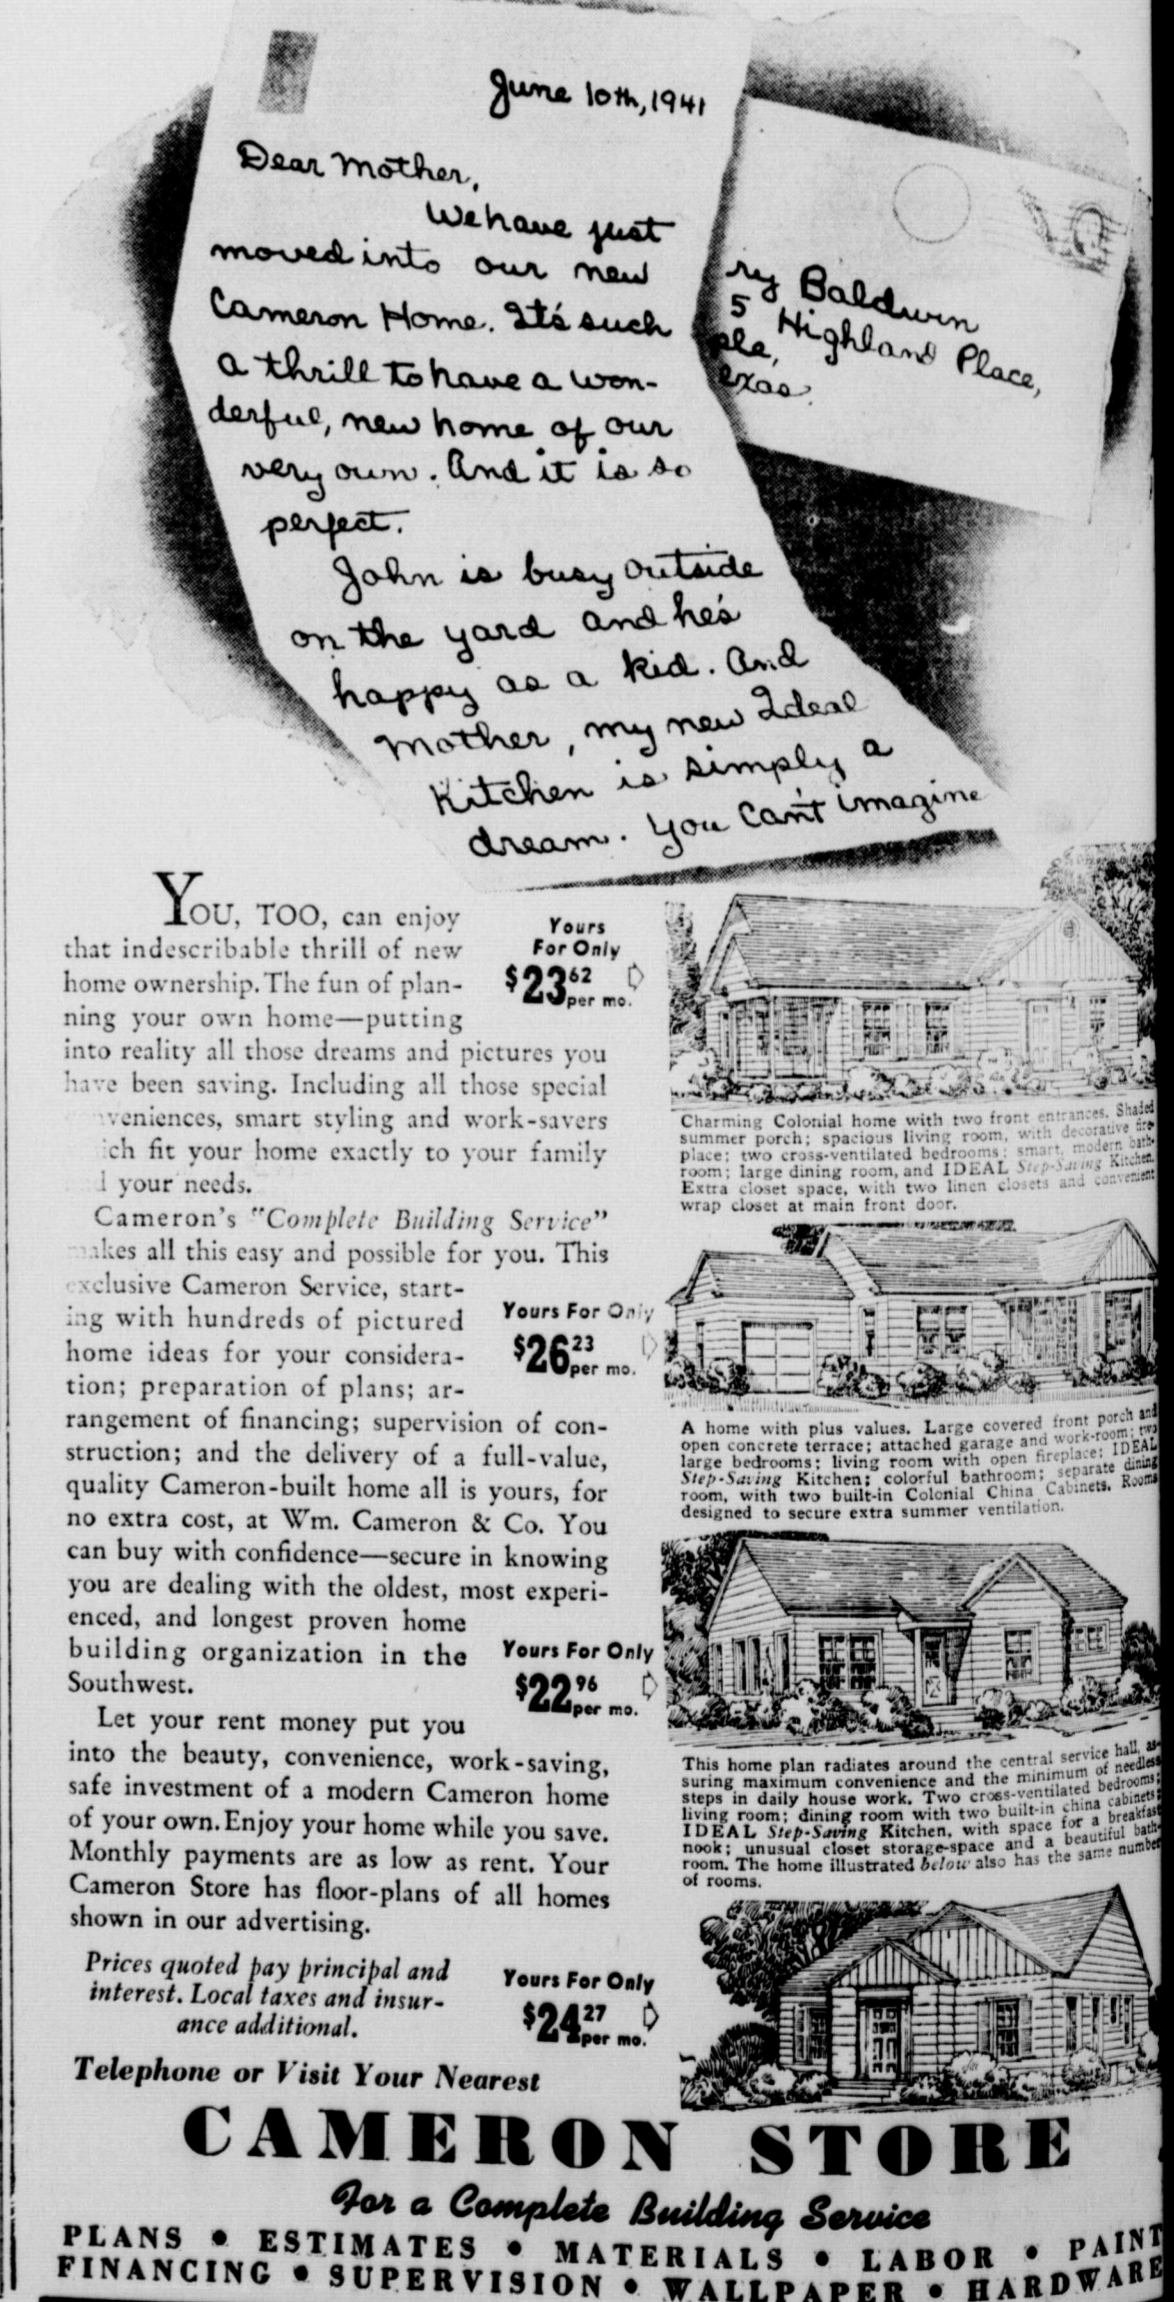 June 10th, 1941
Dear Mother,
We have just
moved into our new
Cameron Home. It's such
a thrill to have a won-
derful, new home of our
very own. And it is so
perfect.
John is busy outside
on the yard and he's
happy as a kid. And
Mother, my new Ideal
Kitchen is simply a
dream. You can't imagine
ry Baldwin
5 Highland Place,
ple,
exas.
YOU, TOO, can enjoy
that indescribable thrill of new
home ownership. The fun of plan-
ning your own home—putting
into reality all those dreams and pictures you
have been saving. Including all those special
veniences, smart styling and work-savers
ich fit your home exactly to your family
d your needs.
Cameron's "Complete Building Service"
makes all this easy and possible for you. This
exclusive Cameron Service, start-
ing with hundreds of pictured
home ideas for your considera-
tion; preparation of plans; ar-
rangement of financing; supervision of con-
struction; and the delivery of a full-value,
quality Cameron-built home all is yours, for
no extra cost, at Wm. Cameron & Co. You
can buy with confidence—secure in knowing
you are dealing with the oldest, most experi-
enced, and longest proven home
building organization in the
Southwest.
Let your rent money put you
into the beauty, convenience, work-saving,
safe investment of a modern Cameron home
of your own. Enjoy your home while you save.
Monthly payments are as low as rent. Your
Cameron Store has floor-plans of all homes
shown in our advertising.
Prices quoted pay principal and
interest. Local taxes and insur-
ance additional.
Yours
For Only
$23.62
per mo.
Charming Colonial home with two front entrances. Shaded
summer porch; spacious living room, with decorative fire-
place; two cross-ventilated bedrooms; smart, modern bath-
room; large dining room, and IDEAL Step-Saving Kitchen.
Extra closet space, with two linen closets and convenient
wrap closet at main front door.
Yours For Only
$26.23
per mo.
A home with plus values. Large covered front porch and
open concrete terrace; attached garage and work-room; two
large bedrooms; living room with open fireplace; IDEAL
Step-Saving Kitchen; colorful bathroom; separate dining
room, with two built-in Colonial China Cabinets. Rooms
designed to secure extra summer ventilation.
Yours For Only
$22.96
per mo.
This home plan radiates around the central service hall, as-
suring maximum convenience and the minimum of needless
steps in daily house work. Two cross-ventilated bedrooms;
living room; dining room with two built-in china cabinets;
IDEAL Step-Saving Kitchen, with space for a breakfast
nook; unusual closet storage-space and a beautiful bath-
room. The home illustrated below also has the same number
of rooms.
Yours For Only
$24.27
per mo.
Telephone or Visit Your Nearest
CAMERON STORE
For a Complete Building Service
PLANS • ESTIMATES • MATERIALS • LABOR • PAINT
FINANCING • SUPERVISION • WALLPAPER • HARDWARE